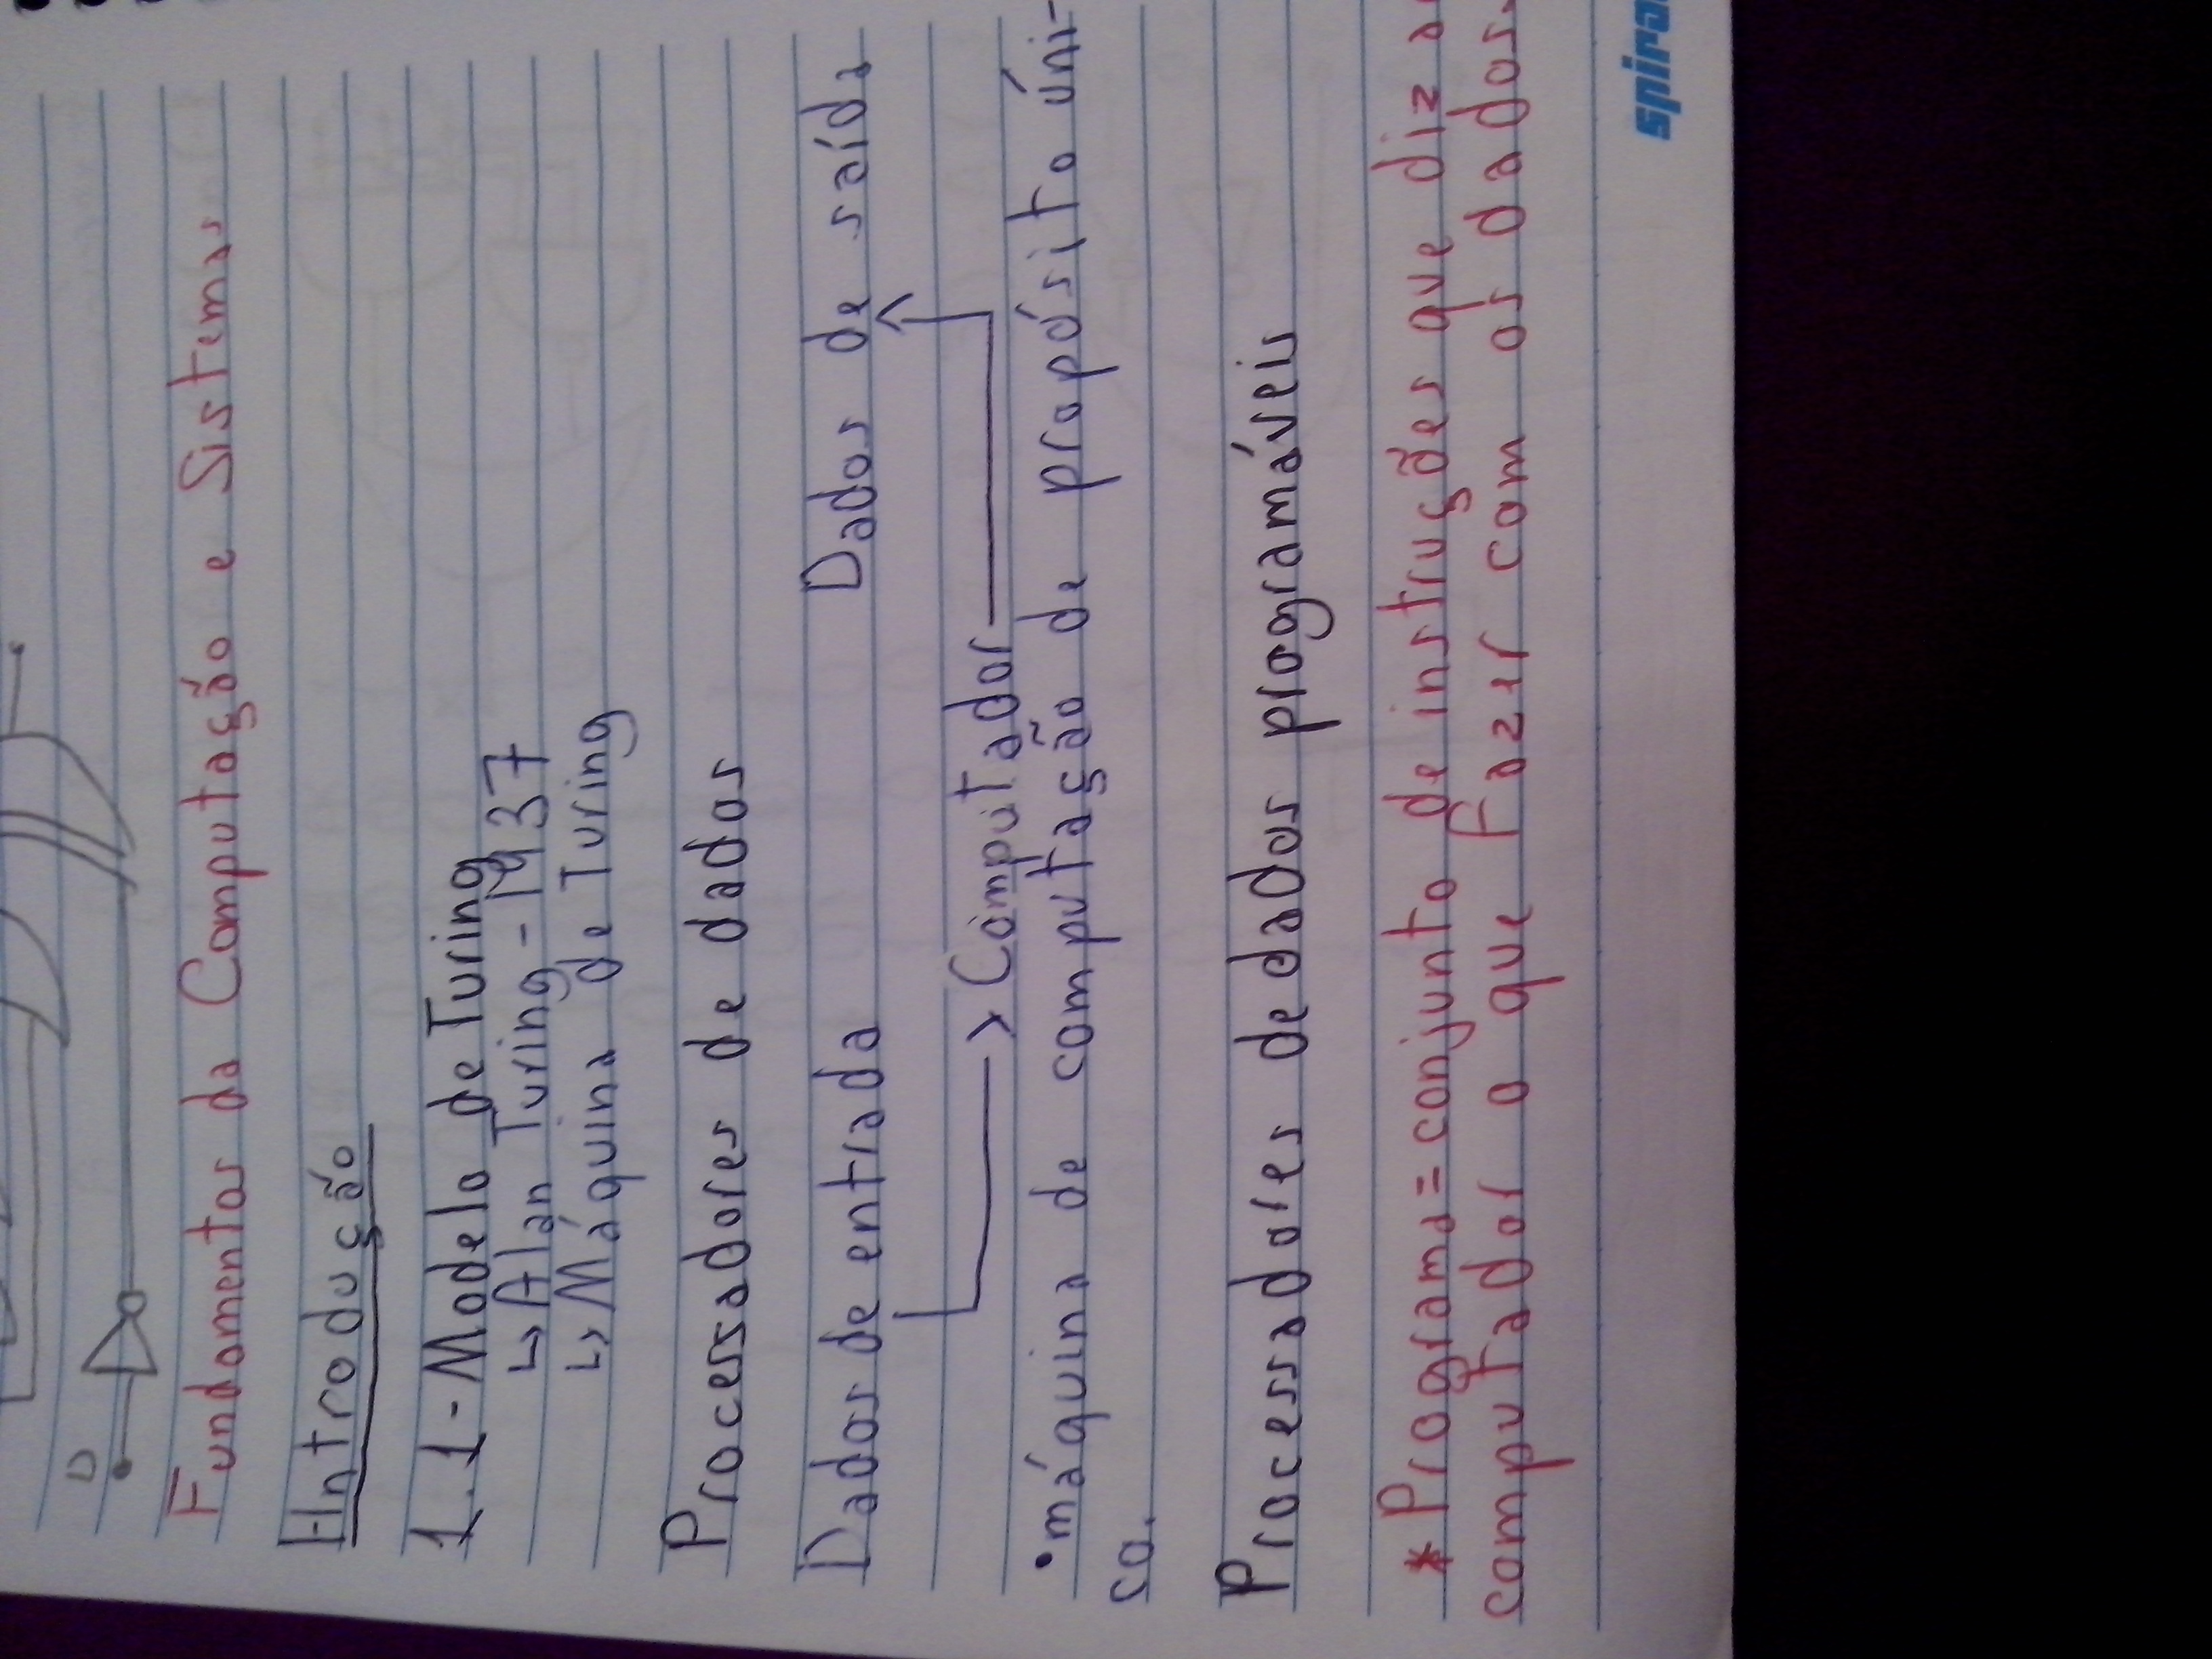 D
Fundamentos da Computação e Sistemas
1-Introdução
1.1-Modelo de Turing
↳ Alan Turing - 1937
↳ Máquina de Turing
Processadores de dados
Dados de entrada Dados de saída
Computador
•máquina de computação de propósito úni-
co.
Processadores de dados programáveis
* Programa = conjunto de instruções que diz a
computador o que fazer com os dados.
spira